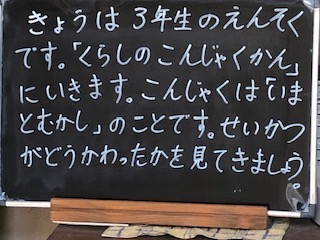 きょうは3年生のえんそく
です。「くらしのこんじゃくかん」
にいきます。こんじゃくは「いま
とむかし」のことです。せいかつ
がどうかわったかを見てきましょう。